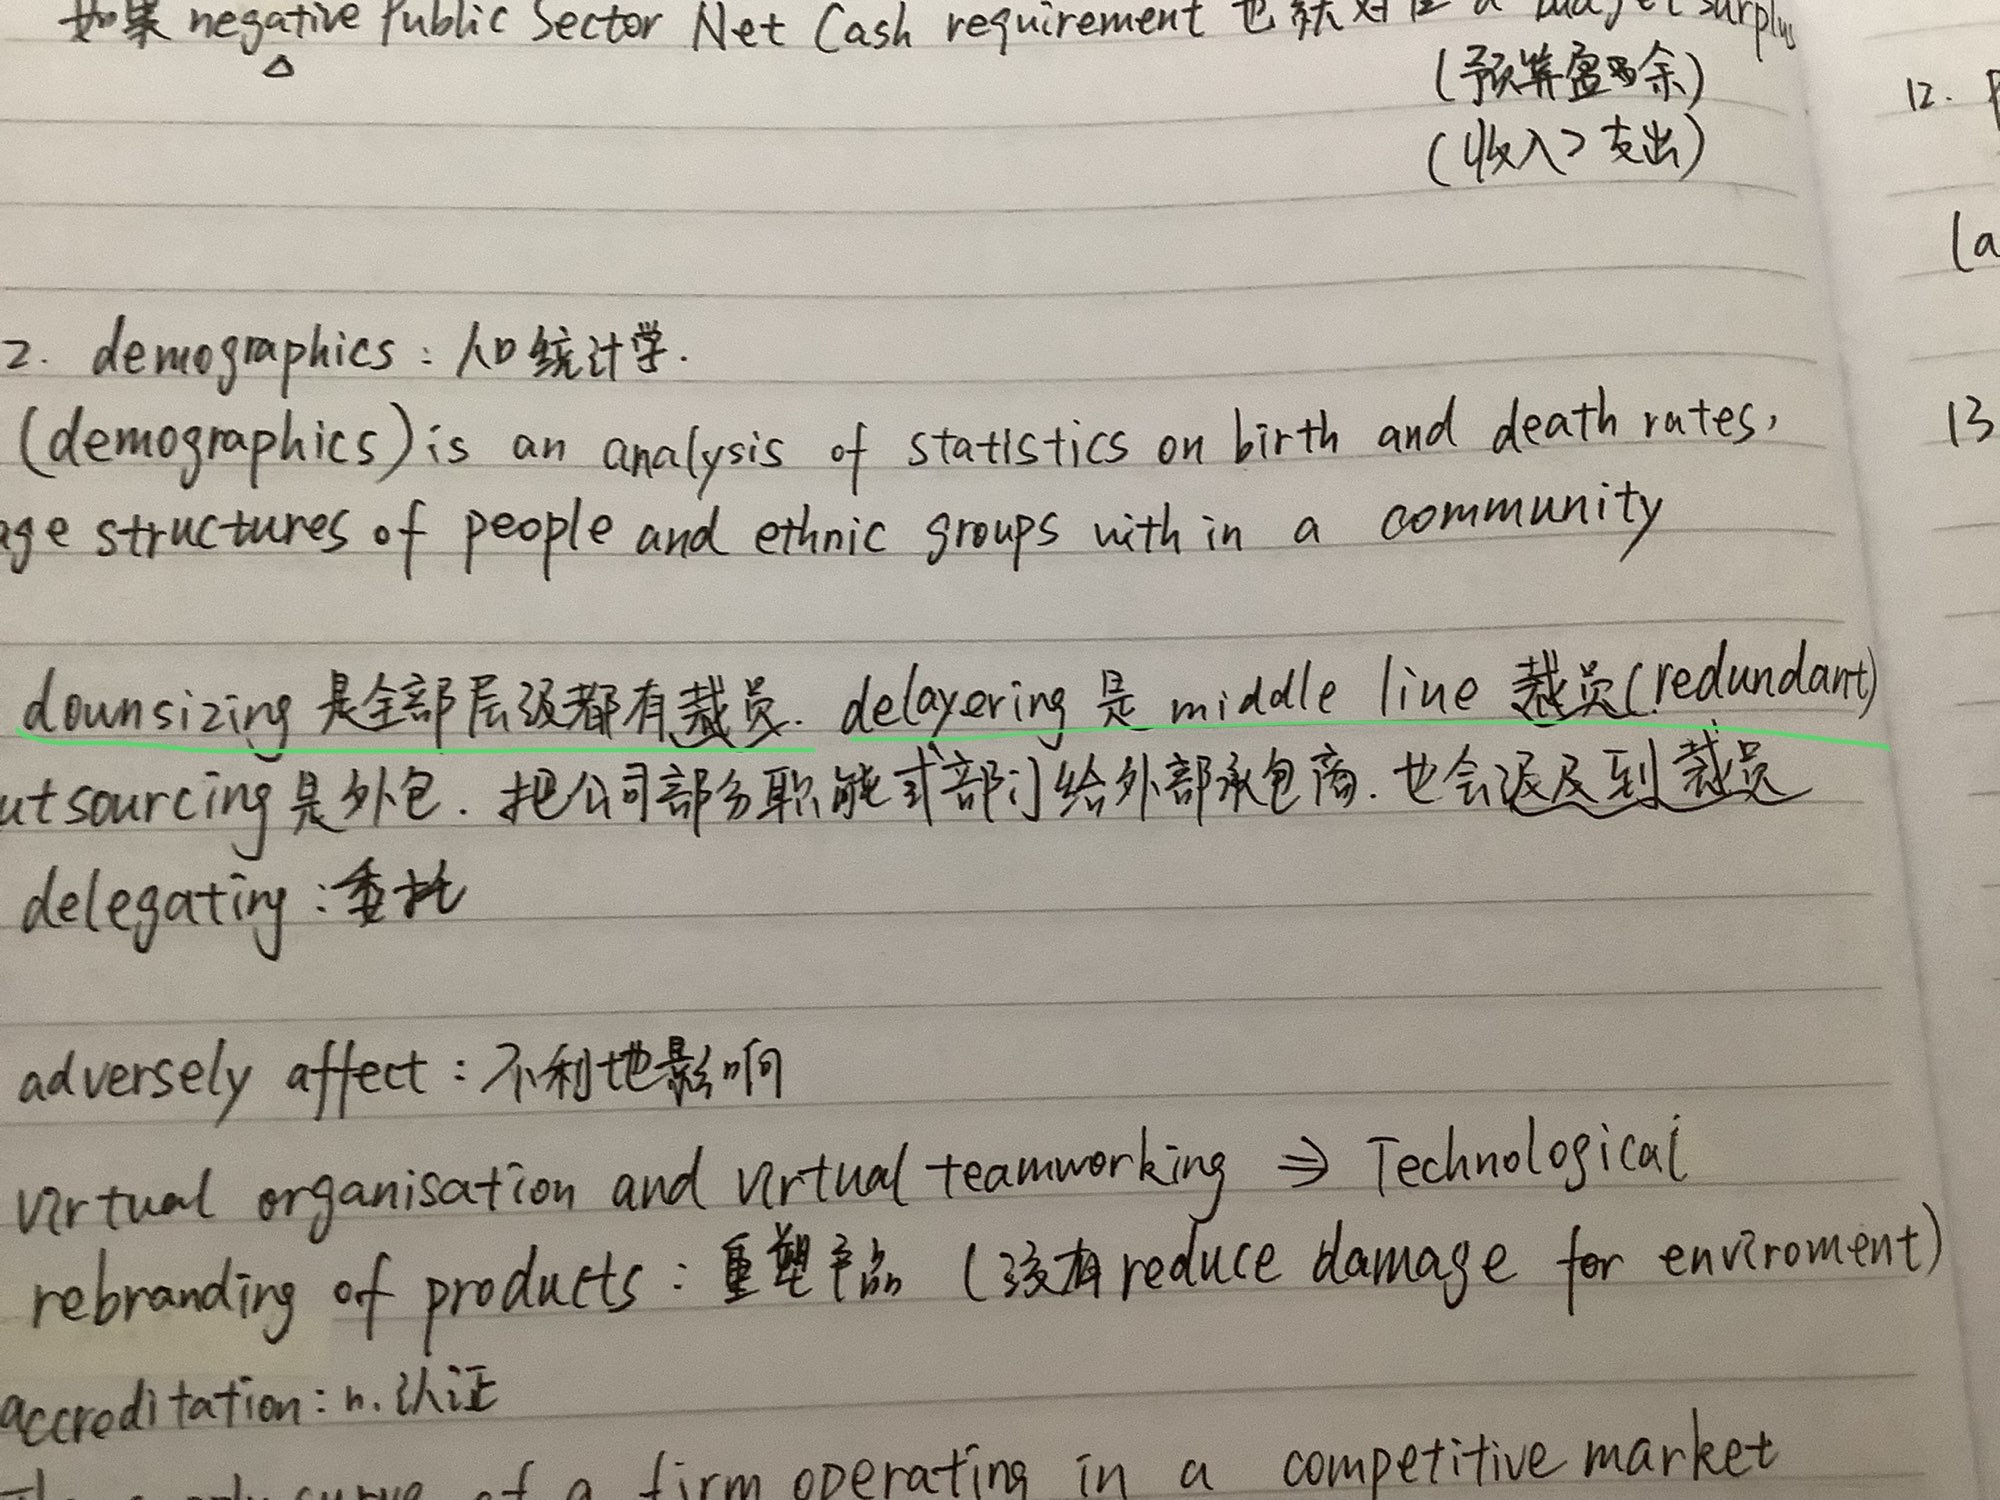 如果 negative Public Sector Net Cash requirement 也就对应 a budget surplus
(预算盈余)
(收入>支出)
2. demographics : 人口统计学.
(demographics) is an analysis of statistics on birth and death rates,
age structures of people and ethnic groups with in a community
downsizing 是全部层级都有裁员. delayering 是 middle line 裁员(redundant)
utsourcing 是外包. 把公司部分职能或部门给外部承包商. 也会涉及到裁员
delegating : 委托
adversely affect : 不利地影响
virtual organisation and virtual teamworking ⇒ Technological
rebranding of products : 重塑产品 (没有 reduce damage for enviroment)
accreditation : n. 认证
curve of a firm operating in a competitive market
12.
(a
13